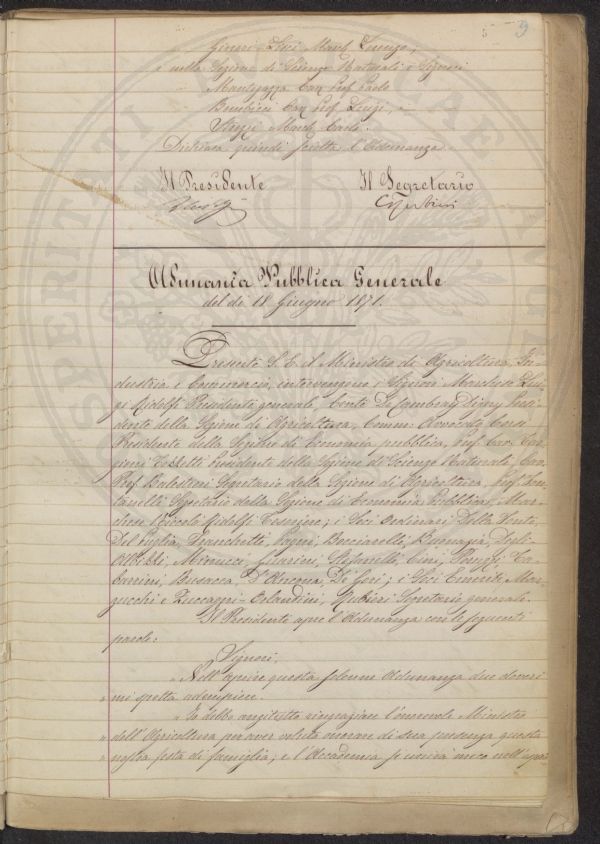 Ginori Lisci March. Lorenzo;
e nella Sezione di Scienze Naturali i Signori
Mantegazza Cav. Prof. Paolo
Bombicci Cav. Prof. Luigi, e
Strozzi March. Carlo.
Dichiara quindi sciolta l'Adunanza.
Il Presidente Il Segretario
Adunanza Pubblica Generale
del dì 18 Giugno 1871.
Presente S. E. il Ministro di Agricoltura, In-
dustria e Commercio, intervengono i Signori Marchese Lui-
gi Ridolfi Presidente generale, Conte De Cambray Digny Presi-
dente della Sezione di Agricoltura, Comm. Avvocato Corsi
Presidente della Sezione di Economia pubblica, Prof. Cav. Tar-
gioni Tozzetti Presidente della Sezione di Scienze Naturali, Cav.
Prof. Balestrini Segretario della Sezione di Agricoltura, Prof. Fon-
tanelli Segretario della Sezione di Economia Pubblica, Mar-
chese Niccolò Ridolfi Tesoriere; i Soci Ordinari Della Fonte,
Del Puglia, Franchetti, Pagni, Becciarelli, Rannagia, Degli
Albizzi, Minucci, Guarini, Stefanelli, Cini, Peruzzi, Ta-
barrini, Busacca, D'Ancona, De Gori; i Soci Emeriti Mar-
zucchi e Zuccagni-Orlandini, Rubieri Segretario generale.
Il Presidente apre l'Adunanza con le seguenti
parole:
Signori,
" Nell'aprire questa solenne Adunanza due doveri
" mi spetta adempiere.
" Io debbo anzitutto ringraziare l'onorevole Ministro
" dell'Agricoltura per aver voluto onorare di sua presenza questa
" nostra festa di famiglia; e l'Accademia si unirà meco nell'apre-